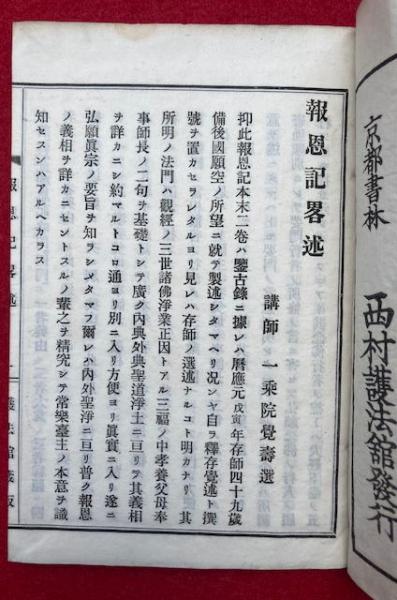 京都書林
西村護法館發行
報恩記畧述
講師一乘院覺壽選
抑此報恩記本末二卷ハ鑒古錄ニ據レハ曆應元戊寅年存師四十九歲
備後國願空ノ所望ニ就テ製述シタマヘリ况ンヤ自ラ釋存覺述ト撰
號ヲ置カセラレタルヨリ見レハ存師ノ選述ナルコト明カナリ其
所明ノ法門ハ觀經ノ三世諸佛淨業正因トアル三福ノ中孝養父母奉
事師長ノ二句ヲ基礎トシテ廣ク內典外典聖道淨土ニ亘リテ其義相
ヲ詳カニシ約マルトコロ通ヨリ別ニ入リ方便ヨリ眞實ニ入リ遂ニ
弘願眞宗ノ要旨ヲ知ラシメタマフ爾レハ內外聖淨ニ亘リ普ク報恩
ノ義相ヲ詳カニセントスルノ輩之ヲ精究シテ常樂臺主ノ本意ヲ識
知セスンハアルヘカラス
報恩記畧述
一
護法館藏版